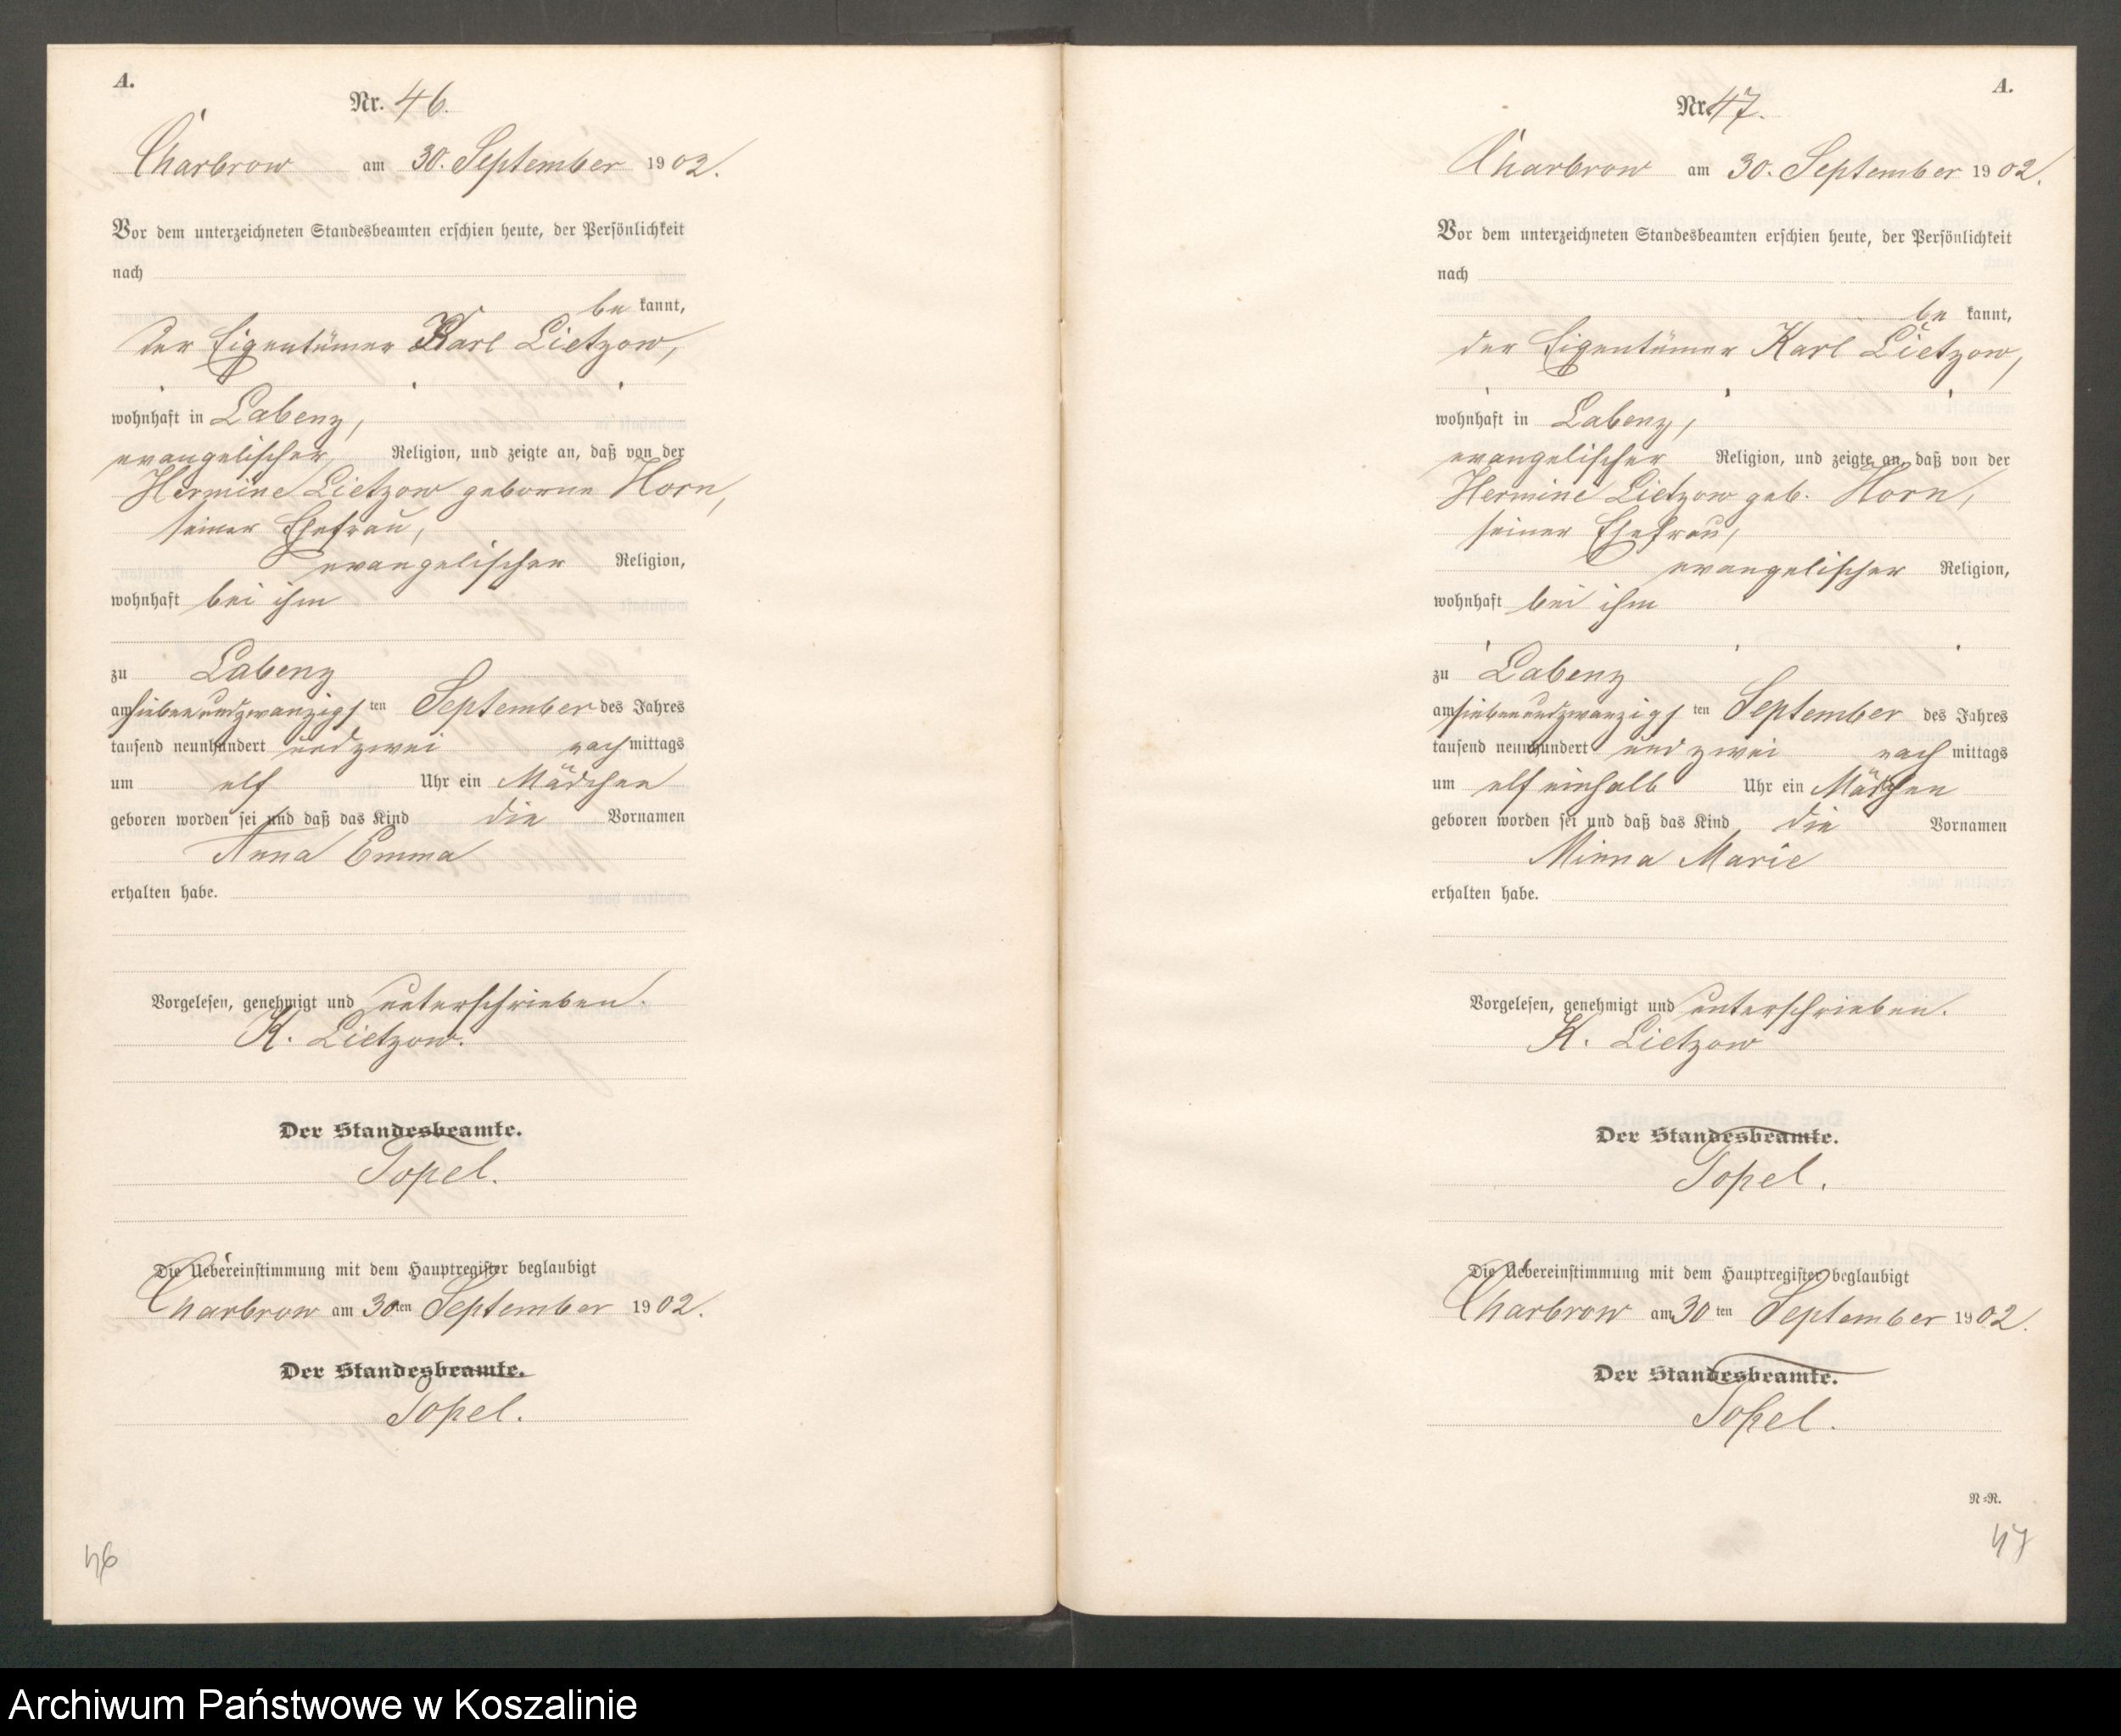 A.
Nr. 46.
Charbrow am 30. September 1902.
Vor dem unterzeichneten Standesbeamten erschien heute, der Persönlichkeit
nach
be kannt,
der Eigentümer Karl Lietzow,
wohnhaft in Labenz,
evangelischer Religion, und zeigte an, daß von der
Hermine Lietzow geborne Horn,
seiner Ehefrau,
evangelischer Religion,
wohnhaft bei ihm
zu Labenz
am siebenundzwanzigsten September des Jahres
tausend neunhundert und zwei nach mittags
um elf Uhr ein Mädchen
geboren worden sei und daß das Kind die Vornamen
Anna Emma
erhalten habe.
Vorgelesen, genehmigt und unterschrieben.
K. Lietzow.
Der Standesbeamte.
Topel.
Die Uebereinstimmung mit dem Hauptregister beglaubigt
Charbrow am 30ten September 1902.
Der Standesbeamte.
Topel.
46
A.
Nr. 47.
Charbrow am 30. September 1902.
Vor dem unterzeichneten Standesbeamten erschien heute, der Persönlichkeit
nach
be kannt,
der Eigentümer Karl Lietzow,
wohnhaft in Labenz,
evangelischer Religion, und zeigte an, daß von der
Hermine Lietzow geb. Horn,
seiner Ehefrau,
evangelischer Religion,
wohnhaft bei ihm
zu Labenz
am siebenundzwanzigsten September des Jahres
tausend neunhundert und zwei nach mittags
um elf einhalb Uhr ein Mädchen
geboren worden sei und daß das Kind die Vornamen
Minna Marie
erhalten habe.
Vorgelesen, genehmigt und unterschrieben.
K. Lietzow
Der Standesbeamte.
Topel.
Die Uebereinstimmung mit dem Hauptregister beglaubigt
Charbrow am 30ten September 1902.
Der Standesbeamte.
Topel.
N-R.
47
Archiwum Państwowe w Koszalinie